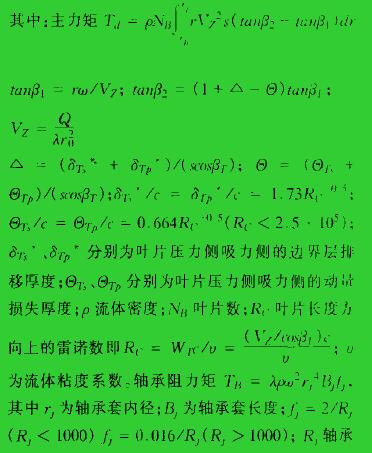 其中:主力矩 T_d = ρN_B∫rV_Z²s(tanβ₂ - tanβ₁)dr
tanβ₁ = rω/V_Z; tanβ₂ = (1 + △ - Θ)tanβ₁;
V_Z = Q/λr₀²
△ = (δ_Ts* + δ_Tp*)/(scosβ_T); Θ = (Θ_Ts +
Θ_Tp)/(scosβ_T); δ_Ts*/c = δ_Tp*/c = 1.73R_C
Θ_Ts/c = Θ_Tp/c = 0.664R_C^-0.5(R_C < 2.5 · 10⁵);
δ_Ts*、δ_Tp* 分别为叶片压力侧吸力侧的边界层排
移厚度;Θ_Ts、Θ_Tp 分别为叶片压力侧吸力侧的动量
损失厚度;ρ 流体密度;N_B 叶片数;R_C 叶片长度方
向上的雷诺数即R_C = W_FC/υ = (V_Z/cosβ₁)c/υ; υ
为流体粘度系数。轴承阻力矩 T_B = λρω²r_J⁴B_Jf_J,
其中 r_J 为轴承套内径;B_J 为轴承套长度; f_J = 2/R_J
(R_J < 1000) f_J = 0.016/R_J(R_J > 1000); R_J 轴承